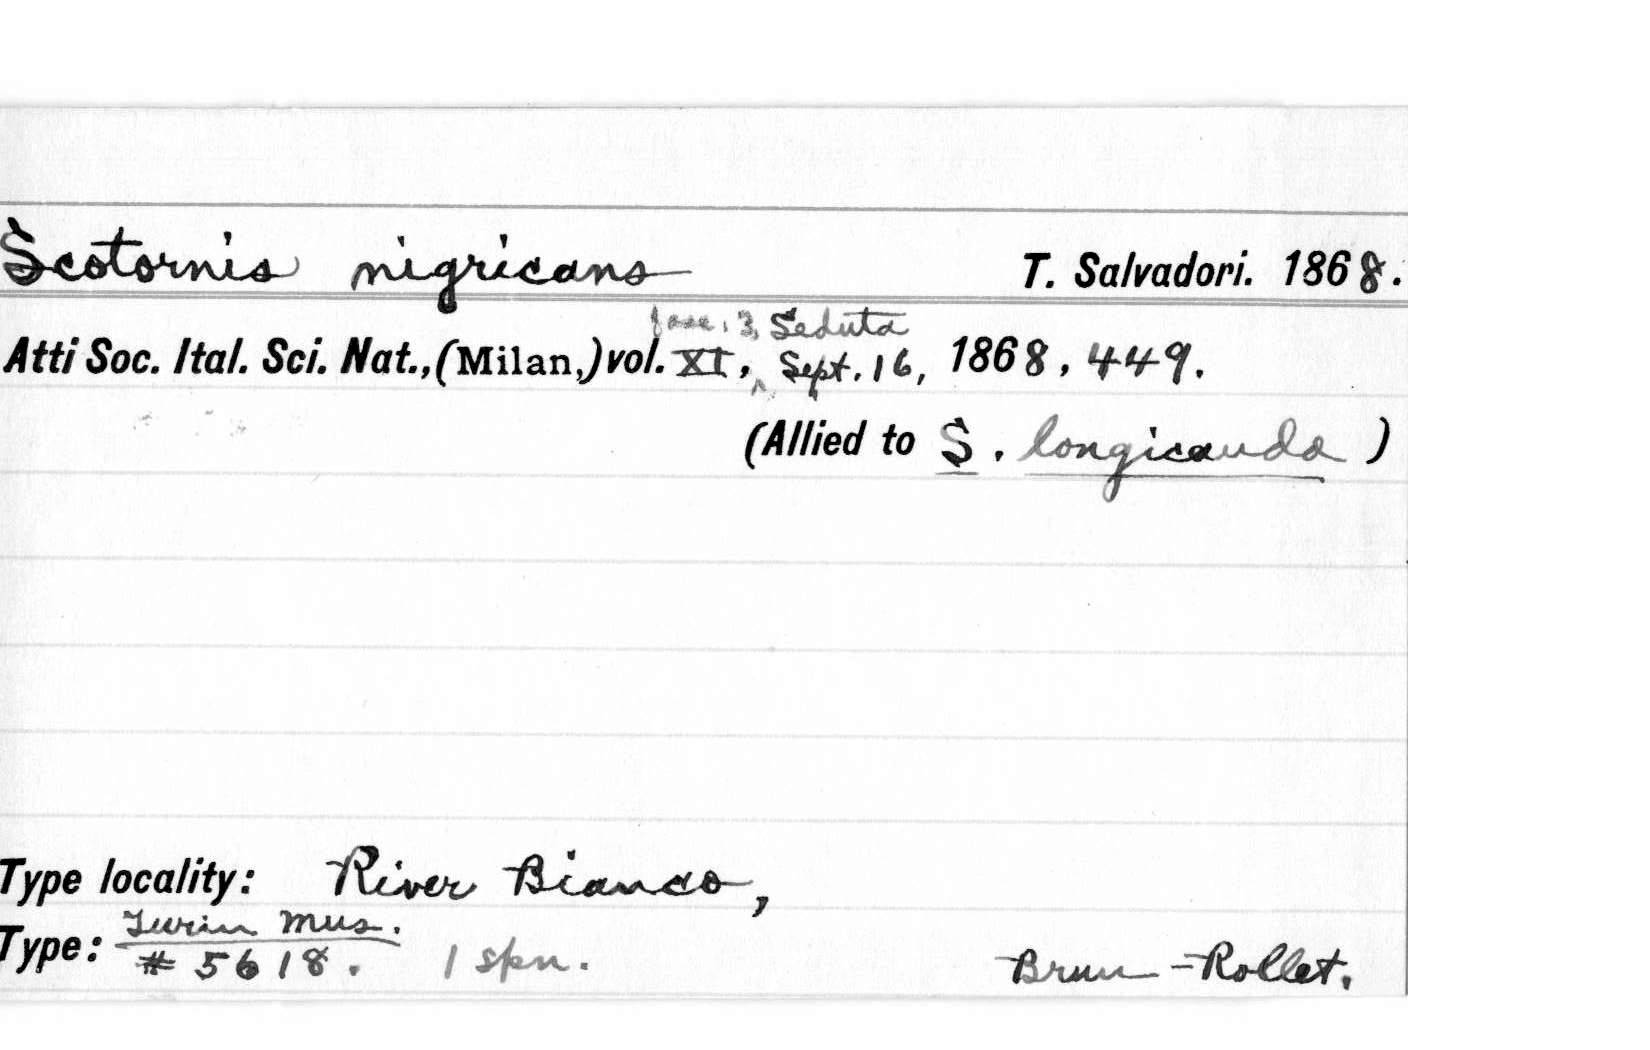 Scotornis nigricans T. Salvadori. 1868.
fasc. 3, Seduta
Atti Soc. Ital. Sci. Nat., (Milan,) vol. XI, Sept. 16, 1868, 449.
(Allied to S. longicauda )
Type locality: River Bianco,
Type: Turin Mus.
# 5618. 1 spn. Brun-Rollet.